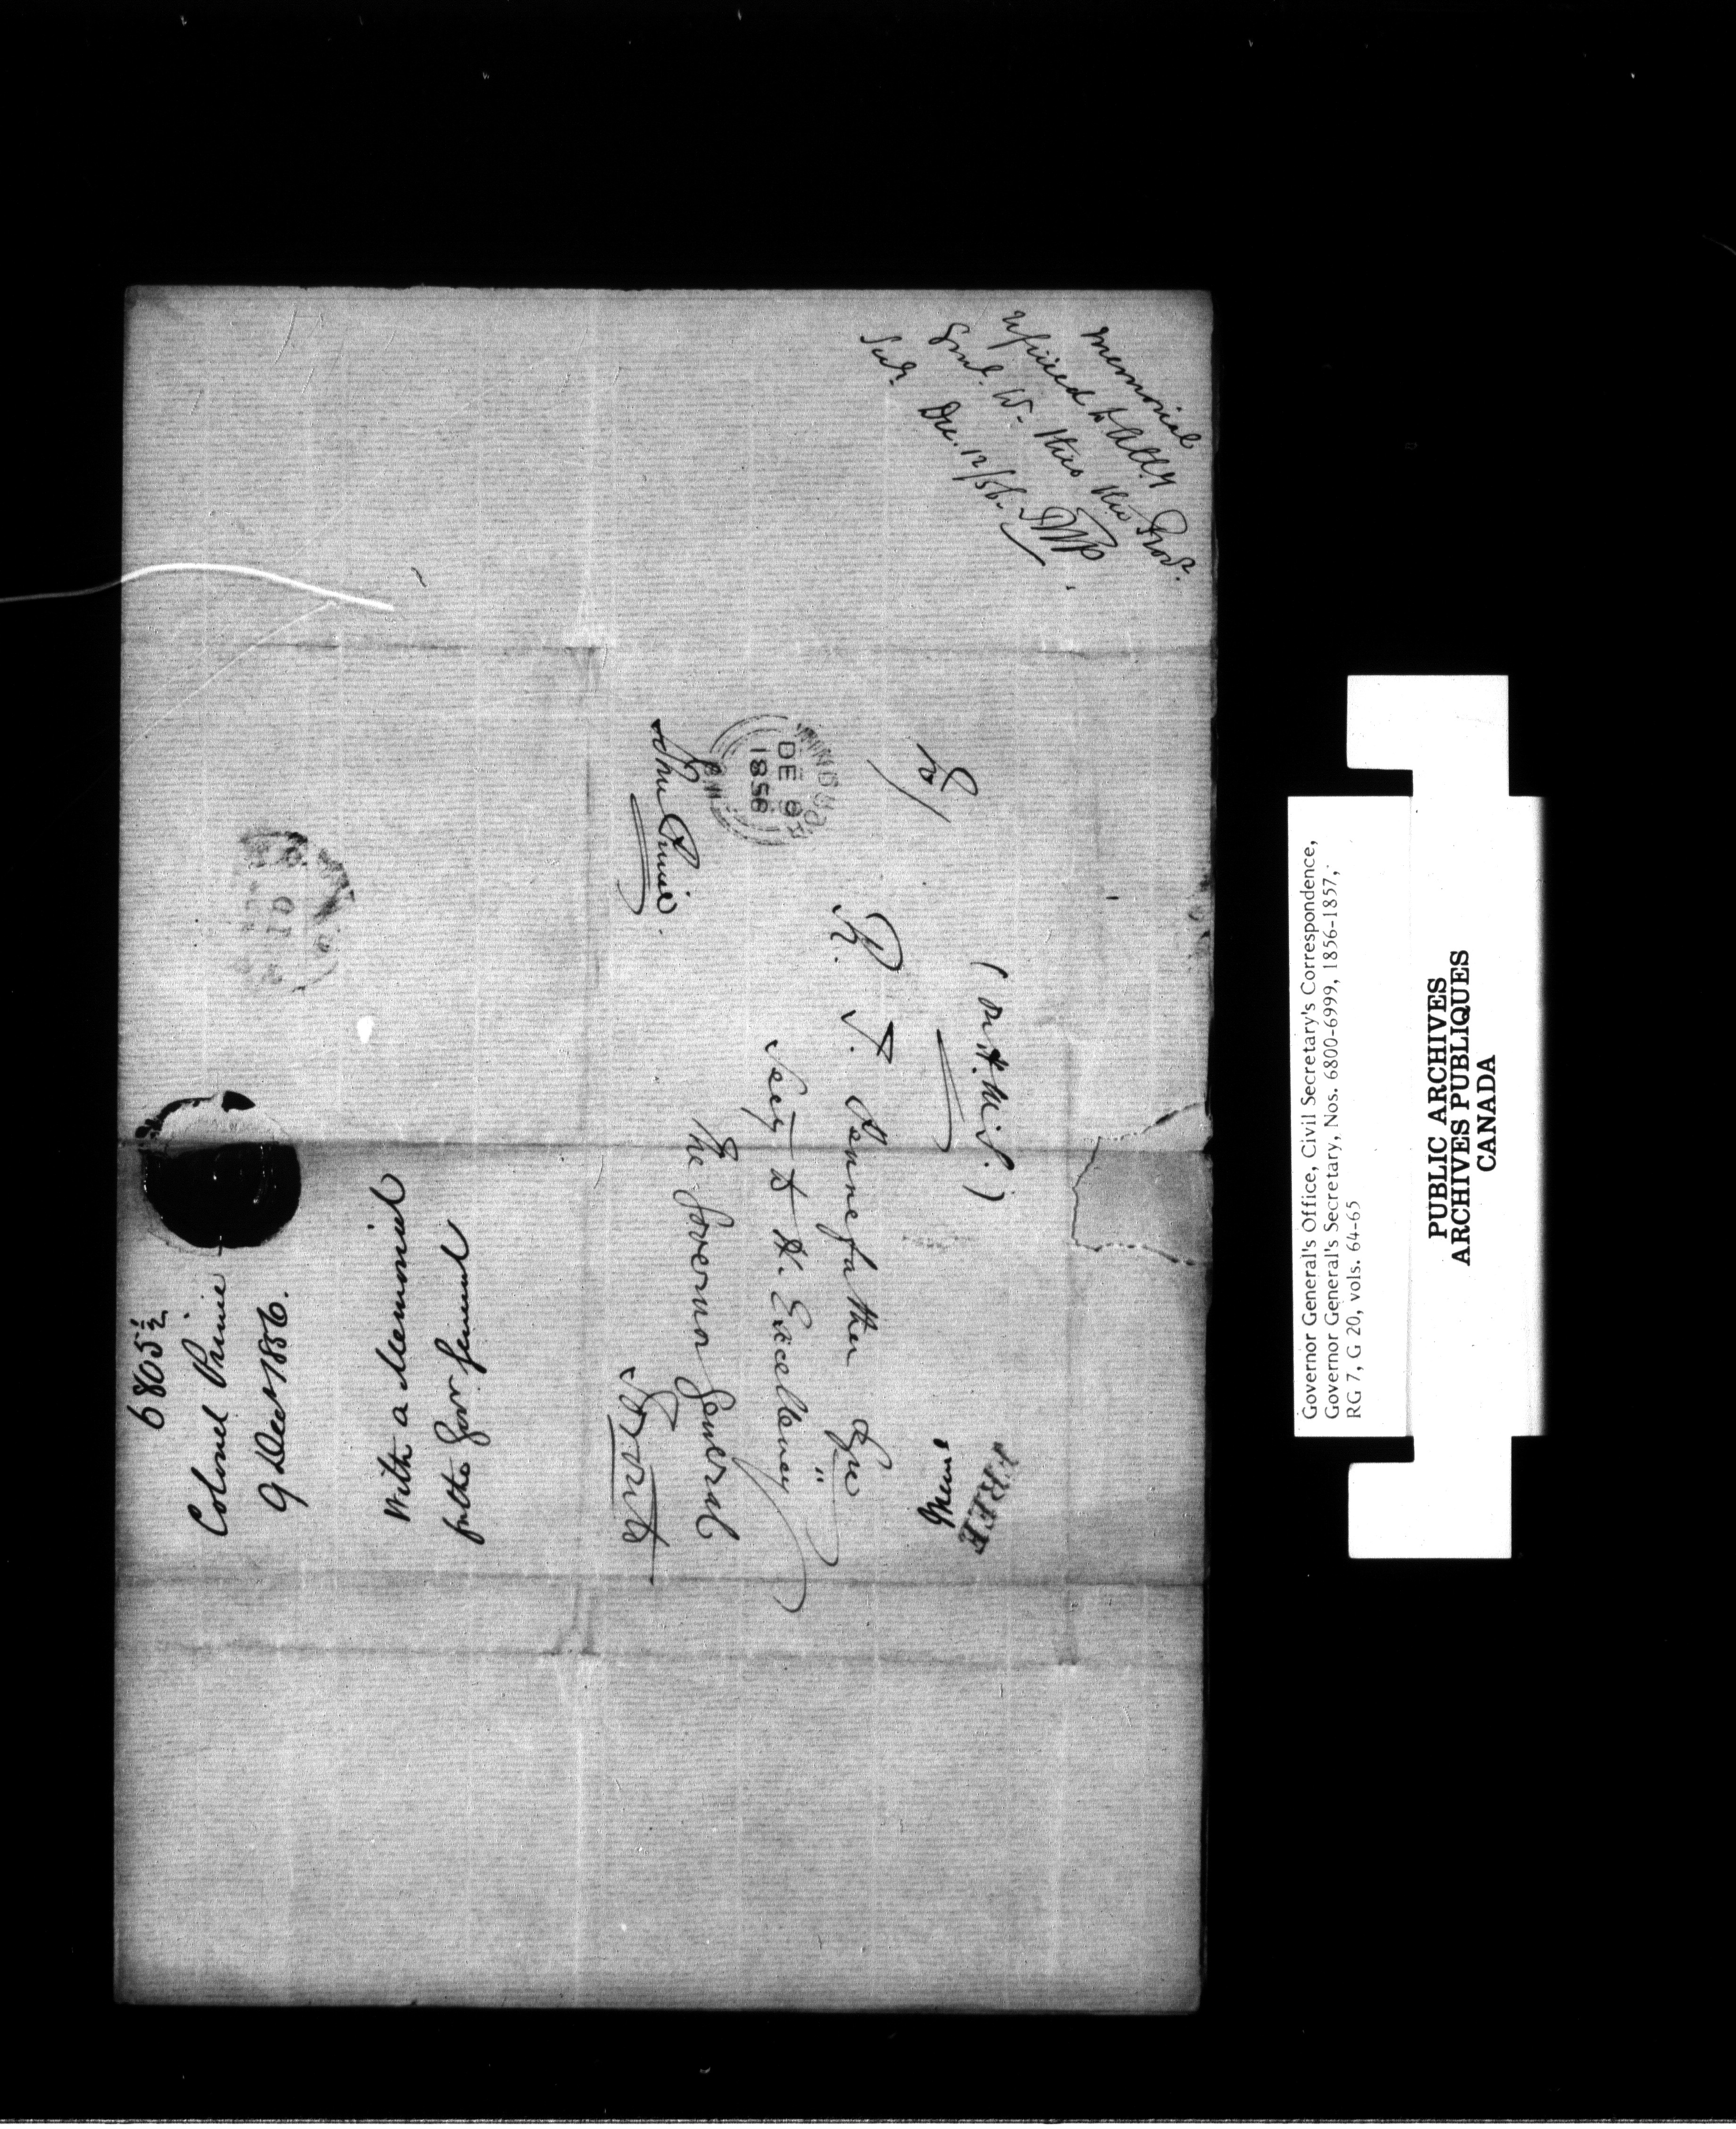 Memorial
referred to Atty
Genl. W. thro the Prov.
Secy. Dec. 12/56.
(On H.M.S.)
R. T. Pennefather Esqre
Secy to H. Excellency
The Governor General
Toronto
John Prince
DE 9
1856
FREE
6805½
Colonel Prince
9 Decr 1856.
With a Memorial
for the Gov. General
Governor General's Office, Civil Secretary's Correspondence,
Governor General's Secretary, Nos. 6800-6999, 1856-1857,
RG 7, G 20, vols. 64-65
PUBLIC ARCHIVES
ARCHIVES PUBLIQUES
CANADA